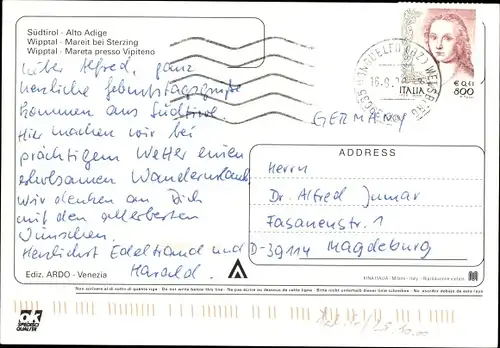 Südtirol - Alto Adige
Wipptal - Mareit bei Sterzing
Wipptal - Mareta presso Vipiteno
Lieber Alfred, ganz
herzliche Geburtstagsgrüße
kommen aus Südtirol.
Hier machen wir bei
prächtigem Wetter einen
erholsamen Wanderurlaub
Wir denken an Dich
mit den allerbesten
Wünschen.
Herzlichst Edeltraud und
Harald.
Ediz. ARDO - Venezia
ITALIA
€ 0,41
800
GERMANY
ADDRESS
Herrn
Dr. Alfred Jumar
Fasanenstr. 1
D-39114 Magdeburg
Non scrivere al di sotto di questa riga - Do not write below this line - Ne pas écrire au dessous de cette ligne - Bitte nicht unterhalb dieser Linie schreiben - No escribir debajo de esta raya